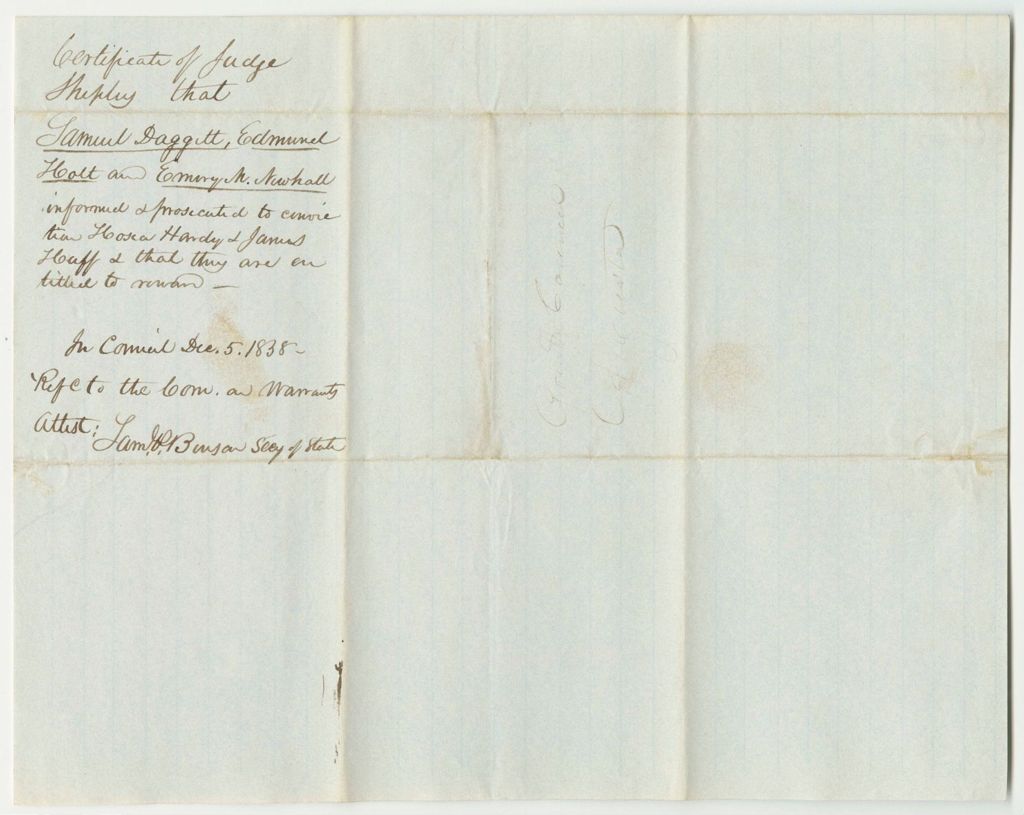 Certificate of Judge
Shepley that
Samuel Daggett, Edmund
Holt and Emery M. Newhall
informed & prosecuted to convic
tion Hosea Hardy & James
Huff & that they are en
titled to reward —
In Council Dec. 5. 1838 -
Refd to the Com. on Warrants
Attest:
Saml. P. Benson Secy of State
Gov & Council
Augusta